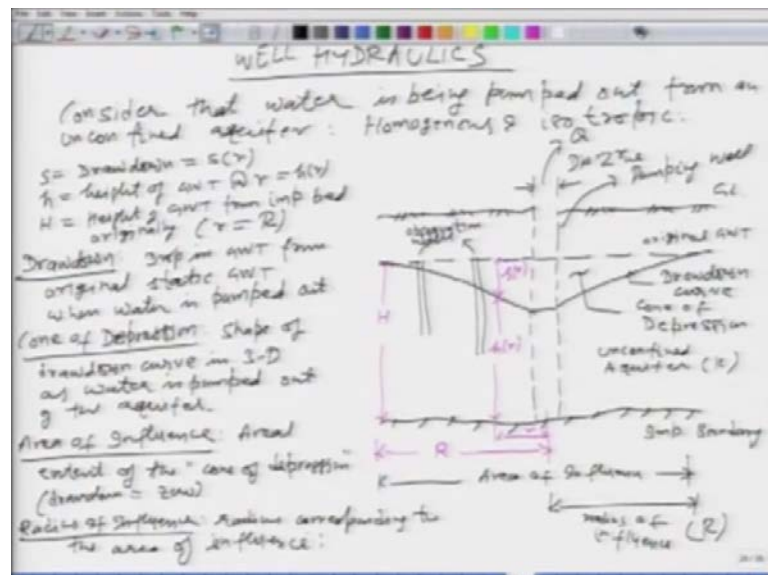 WELL HYDRAULICS
Consider that water is being pumped out from an
unconfined aquifer: Homogenous & isotropic.
S = Drawdown = s(r)
h = height of GWT @ r = h(r)
H = Height of GWT from imp bed
originally (r = R)
Drawdown: Drop in GWT from
original static GWT
when water is pumped out
Cone of Depression: Shape of
drawdown curve in 3-D
as water is pumped out
of the aquifer.
Area of Influence: Areal
extent of the "cone of depression"
(drawdown = zero)
Radius of Influence: radius corresponding to
the area of influence:
Q
D = 2rw
Pumping well
G.L.
observation
original GWT
s(r)
Drawdown
curve
Cone of
Depression
H
h(r)
unconfined
Aquifer (K)
Imp. Boundary
r
R
Area of Influence
radius of
influence (R)